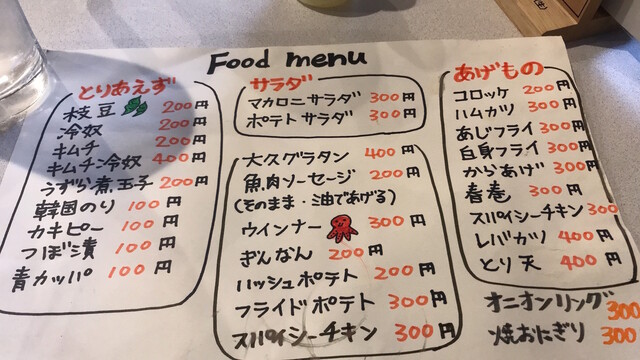 Food menu
とりあえず
枝豆 200円
冷奴 200円
キムチ 200円
キムチ冷奴 400円
うずら煮玉子 200円
韓国のり 100円
カキピー 100円
つぼ漬 100円
青カッパ 100円
サラダ
マカロニサラダ 300円
ポテトサラダ 300円
大久グラタン 400円
魚肉ソーセージ 200円
(そのまま・油であげる)
ウインナー 300円
ぎんなん 200円
ハッシュポテト 200円
フライドポテト 300円
スパイシーチキン 300円
あげもの
コロッケ 200円
ハムカツ 300円
あじフライ 300円
白身フライ 300円
からあげ 300円
春巻 300円
スパイシーチキン 300
レバカツ 400円
とり天 400円
オニオンリング 300
焼おにぎり 300